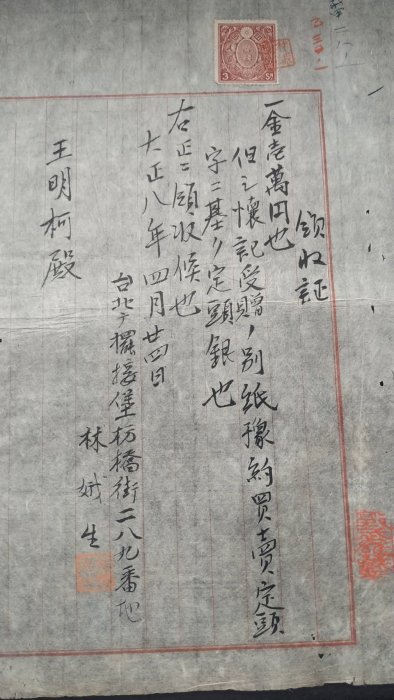 領収証
一金壱萬円也
但之懐記受贈ノ別紙豫約買賣定頭
字ニ基ノ定頭銀也
右正ニ領收候也
大正八年四月廿四日
台北庁擺接堡枋橋街二八九番地
林娥生
王明柯殿